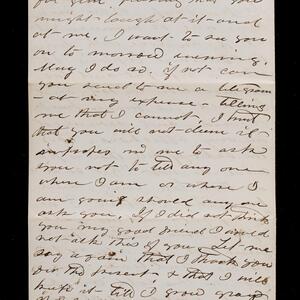 for you, fearing that you
might laugh at it and
at me. I want to see you
on to morrow evening.
May I do so. if not can
you send to me a telegram
- at my expense - telling
me that I cannot. I trust
that you will not deem it
improper in me to ask
you not to tell any one
where I am or where I
am going should any one
ask you. If I did not think
you my good friend I would
not ask this of you Let me
say again that I thank you
for the present, & that I will
keep it till I grow gray